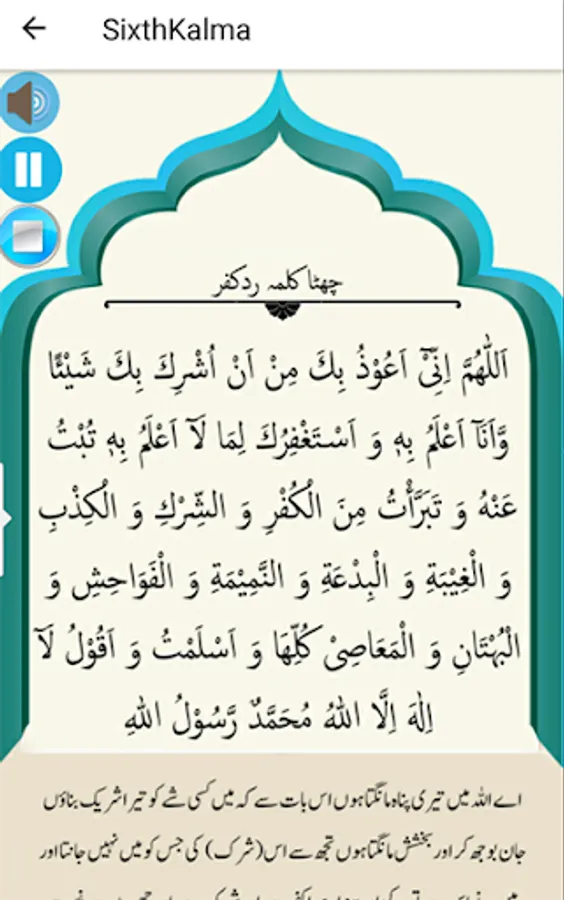 SixthKalma
چھٹا کلمہ ردکفر
اَللّٰهُمَّ اِنِّیْٓ اَعُوْذُ بِكَ مِنْ اَنْ اُشْرِكَ بِكَ شَيْئًا
وَّاَنَآ اَعْلَمُ بِهٖ وَ اَسْتَغْفِرُكَ لِمَا لَآ اَعْلَمُ بِهٖ تُبْتُ
عَنْهُ وَ تَبَرَّأْتُ مِنَ الْكُفْرِ وَ الشِّرْكِ وَ الْكِذْبِ
وَ الْغِيْبَةِ وَ الْبِدْعَةِ وَ النَّمِيْمَةِ وَ الْفَوَاحِشِ وَ
الْبُهْتَانِ وَ الْمَعَاصِیْ كُلِّهَا وَ اَسْلَمْتُ وَ اَقُوْلُ لَآ
اِلٰهَ اِلَّا اللهُ مُحَمَّدٌ رَّسُوْلُ اللهِ
اے اللہ میں تیری پناہ مانگتا ہوں اس بات سے کہ میں کسی شے کو تیرا شریک بناؤں
جان بوجھ کر اور بخشش مانگتا ہوں تجھ سے اس (شرک) کی جس کو میں نہیں جانتا اور